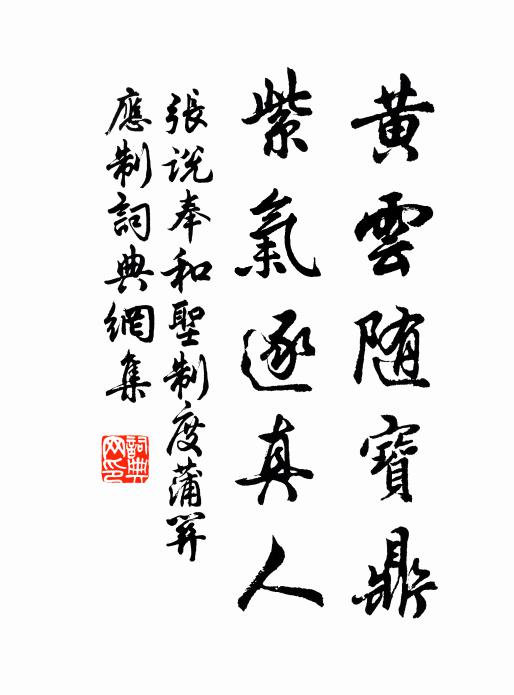 黄雲随寶鼎
紫氣逐真人
張說奉和聖制度蒲關
應制詞典網集
詞典网印